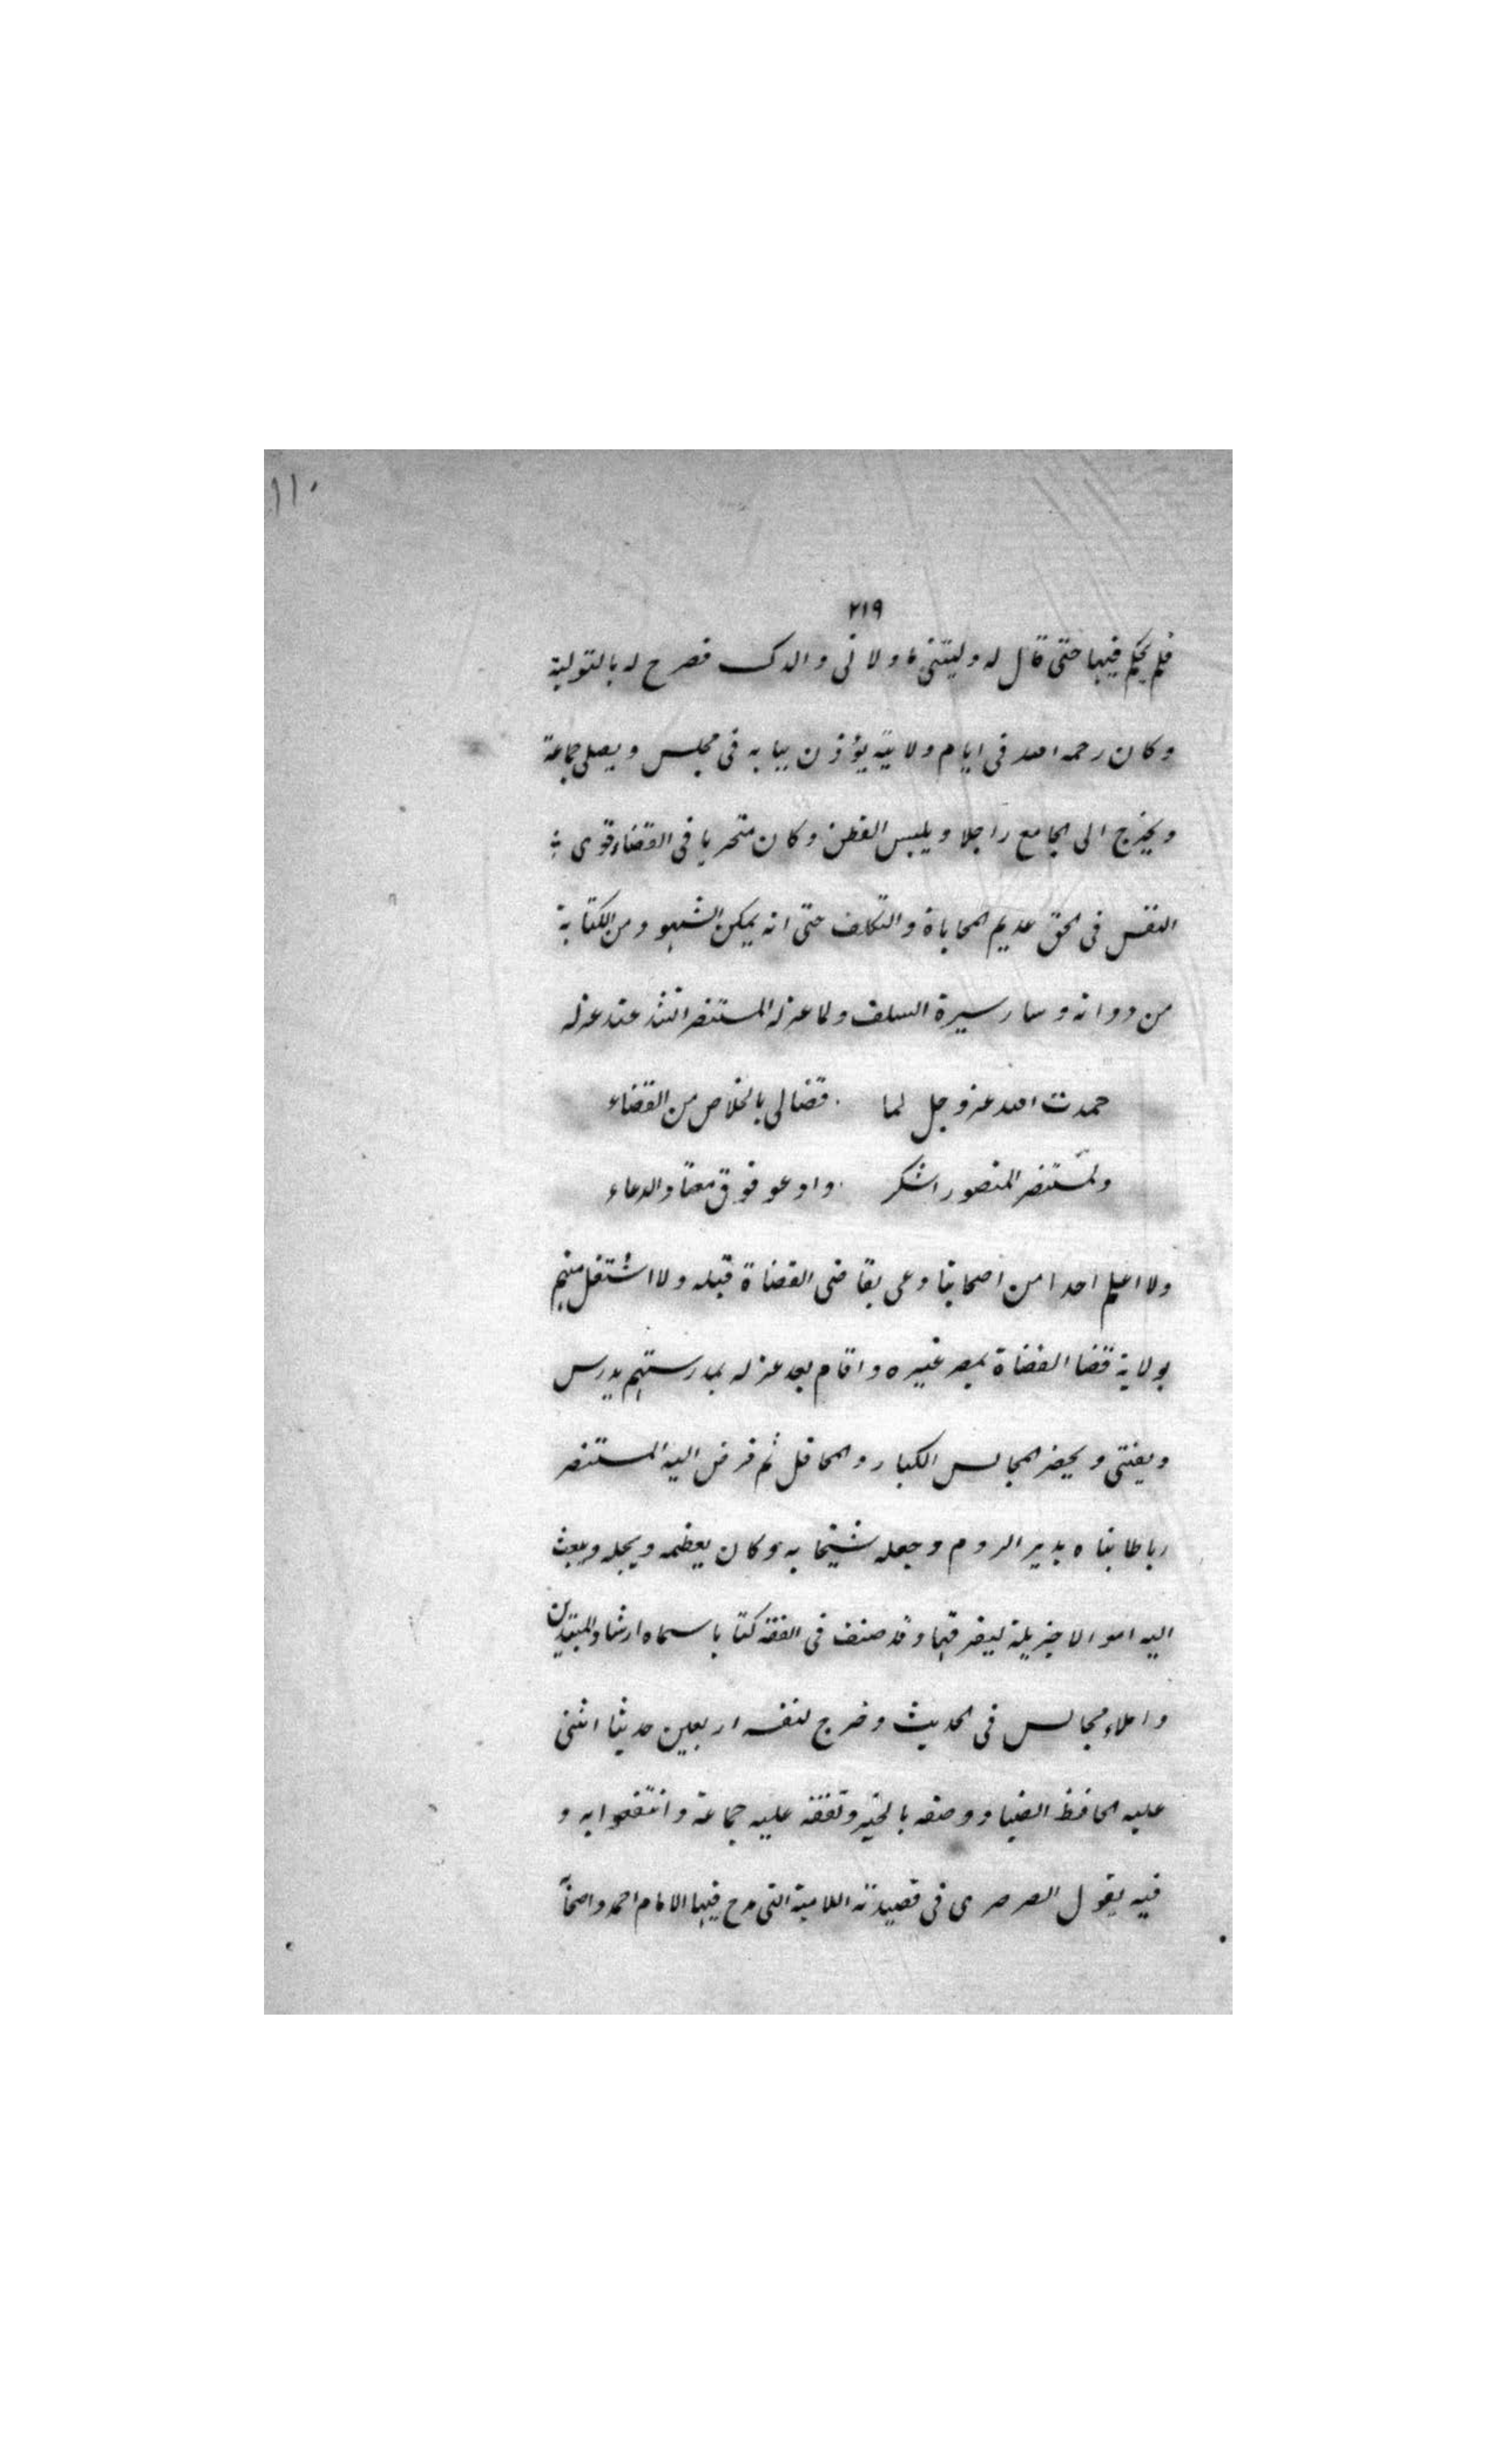 ١١٠
٢١٩
فلم يحكم فيها حتى قال له وليتنى ما ولانى والدك فصرح له بالتولية
وكان رحمه الله فى ايام ولايته يؤذن ببابه فى مجلس ويصلى جماعة
ويخرج الى الجامع راجلا ويلبس القطن وكان متحريا فى القضاء قوى
النفس فى الحق عديم المحاباة والتكلف حتى انه يمكن الشهود من الكتابة
من دواته وسار سيرة السلف ولما عزله المستنصر انشد عند عزله
حمدت الله عز وجل لما قضا لى بالخلاص من القضاء
وللمستنصر المنصور اشكر وادعو فوق معتاد الدعاء
ولا اعلم احدا من اصحابنا دعى بقاضى القضاة قبله ولا اشتغل منهم
بولاية قضا القضاة بمصر غيره واقام بعد عزله بمدرستهم يدرس
ويفتى ويحضر المجالس الكبار والمحافل ثم فوض اليه المستنصر
رباطا بناه بدير الروم وجعله شيخا به وكان يعظمه ويجله ويبعث
اليه اموالا جزيلة ليفرقها وقد صنف فى الفقه كتابا سماه ارشاد المبتدين
واملاء مجالس فى الحديث وخرج لنفسه اربعين حديثا اثنى
عليه الحافظ الضيا ووصفه بالخير وتفقه عليه جماعة وانتفعوا به و
فيه يقول الصرصرى فى قصيدته اللامية التى مدح فيها الامام احمد واصحابه